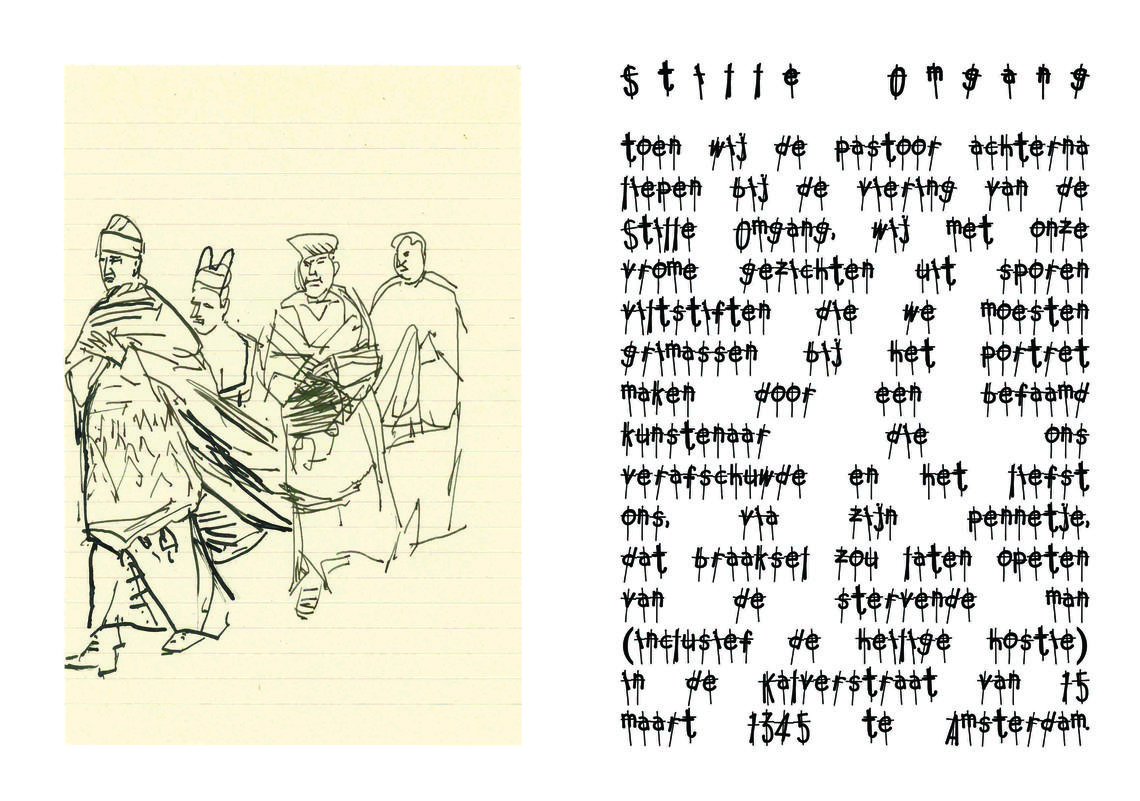 Stille Omgang
toen wij de pastoor achterna
liepen bij de viering van de
Stille Omgang, wij met onze
vrome gezichten uit sporen
viltstiften die we moesten
grimassen bij het portret
maken door een befaamd
kunstenaar die ons
verafschuwde en het liefst
ons, via zijn pennetje,
dat braaksel zou laten opeten
van de stervende man
(inclusief de heilige hostie)
in de Kalverstraat van 15
maart 1345 te Amsterdam.